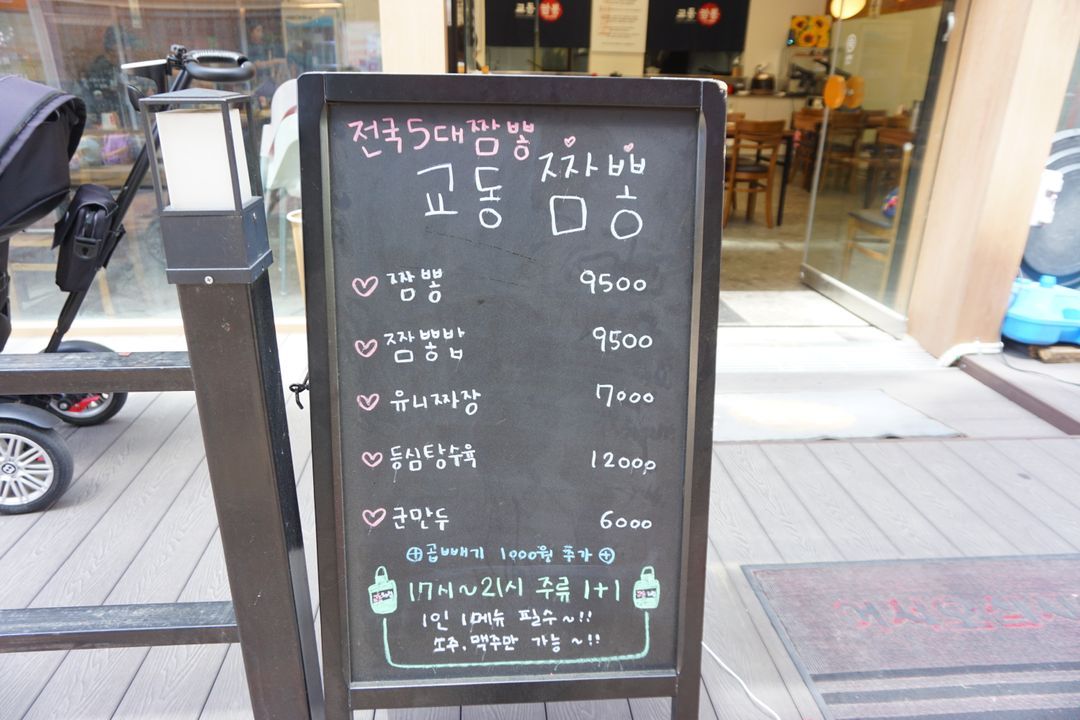 교동 짬뽕
교동 짬뽕
전국5대짬뽕
교동 짬뽕
짬뽕 9500
짬뽕밥 9500
유니짜장 7000
등심탕수육 12000
군만두 6000
곱빼기 1000원 추가
17시~21시 주류 1+1
1인 1메뉴 필수~!!
소주, 맥주만 가능~!!